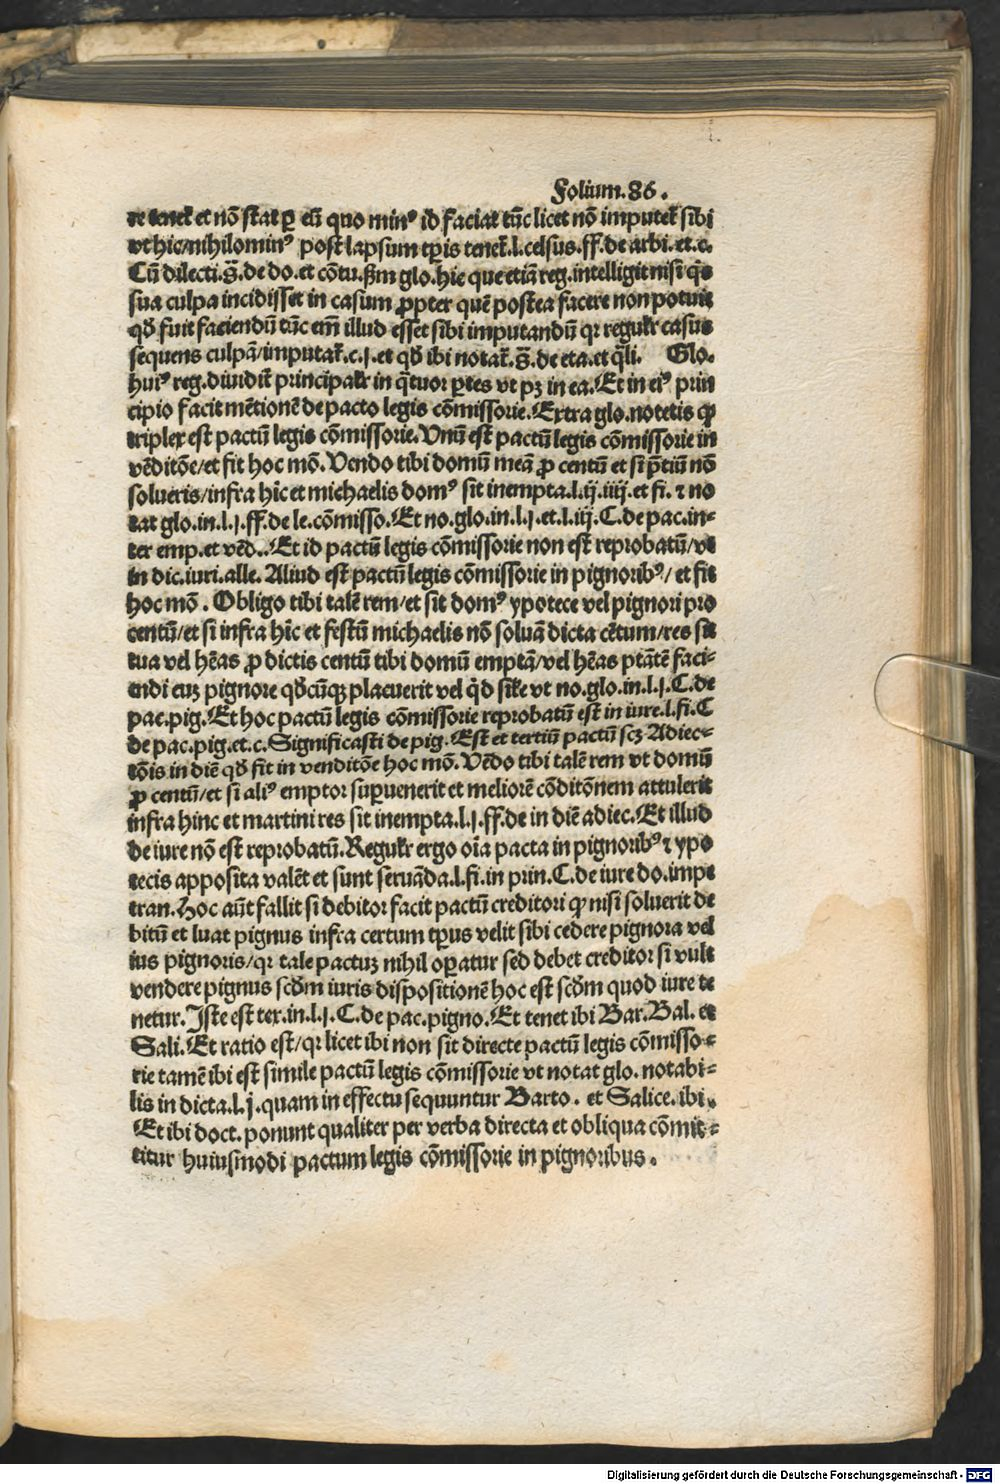 Folium.86.
re tenet̃ et nõ stat ꝑ eũ quo minꝰ id faciat tũc licet nõ imputet̃ sibi
vt hic/nihilominꝰ post lapsum tꝑis tenet̃.l.celsus.ff.de arbi.et.c.
Cũ dilecti.s̃.de do.et cõtu.ẜm glo.hic que etiã reg.intelligit nisi q̃s
sua culpa incidisset in casum ꝓpter quẽ postea facere non potuit
qđ fuit faciendũ tũc em̃ illud esset sibi imputandũ qꝛ regulr̃ casus
sequens culpã/imputat̃.c.j.et qđ ibi notat̃.s̃.de eta.et q̃li. Glo.
huiꝰ reg.diuidit̃ principalr̃ in q̃tuor ꝑtes vt pꝫ in ea.Et in eiꝰ prin
cipio facit mẽtionẽ de pacto legis cõmissorie.Extra glo.notetis ꝙ
triplex est pactũ legis cõmissorie.Vnũ est pactũ legis cõmissorie in
vẽditõe/et fit hoc mõ.Vendo tibi domũ meã ꝓ centũ et si p̃tiũ nõ
solueris/infra hĩc et michaelis domꝰ sit inempta.l.ij.iiij.et fi.⁊ no
tat glo.in.l.j.ff.de le.cõmisso.Et no.glo.in.l.j.et.l.iij.C.de pac.in⸗
ter emp.et vẽd..Et id pactũ legis cõmissorie non est reprobatũ/vt
in dic.iuri.alle. Aliud est pactũ legis cõmissorie in pignoribꝰ/et fit
hoc mõ. Obligo tibi talẽ rem/et sit domꝰ ypotece vel pignori pro
centũ/et si infra hĩc et festũ michaelis nõ soluã dicta cẽtum/res sit
tua vel hẽas ꝓ dictis centũ tibi domũ emptã/vel hẽas ptãtẽ faci⸗
endi euꝫ pignore qđcũqꝫ placuerit vel q̃d sil̃e vt no.glo.in.l.j.C.de
pac.pig.Et hoc pactũ legis cõmissorie reprobatũ est in iure.l.fi.C
de pac.pig.et.c.Significasti de pig.Est et tertiũ pactũ scꝫ Adiec⸗
tõis in diẽ qđ fit in venditõe hoc mõ.Vẽdo tibi talẽ rem vt domũ
ꝓ centũ/et si aliꝰ emptor suꝑuenerit et meliorẽ cõditõnem attulerit
infra hinc et martini res sit inempta.l.j.ff.de in diẽ adiec.Et illud
de iure nõ est reprobatũ.Regulr̃ ergo oĩa pacta in pignoribꝰ ⁊ ypo
tecis apposita valẽt et sunt seruãda.l.fi.in prin.C.de iure do.impe
tran.Hoc aũt fallit si debitor facit pactũ creditori ꝙ nisi soluerit de
bitũ et luat pignus infra certum tꝑus velit sibi cedere pignora vel
ius pignoris/qꝛ tale pactuꝫ nihil oꝑatur sed debet creditor si vult
vendere pignus scđm iuris dispositionẽ hoc est scđm quod iure te
netur.Iste est tex.in.l.j.C.de pac.pigno.Et tenet ibi Bar.Bal.et
Sali.Et ratio est/qꝛ licet ibi non sit directe pactũ legis cõmisso⸗
rie tamẽ ibi est simile pactũ legis cõmissorie vt notat glo.notabi⸗
lis in dicta.l.j.quam in effectu sequuntur Barto. et Salice.ibi.
Et ibi doct.ponunt qualiter per verba directa et obliqua cõmit⸗
titur huiusmodi pactum legis cõmissorie in pignoribus.
Digitalisierung gefördert durch die Deutsche Forschungsgemeinschaft - DFG